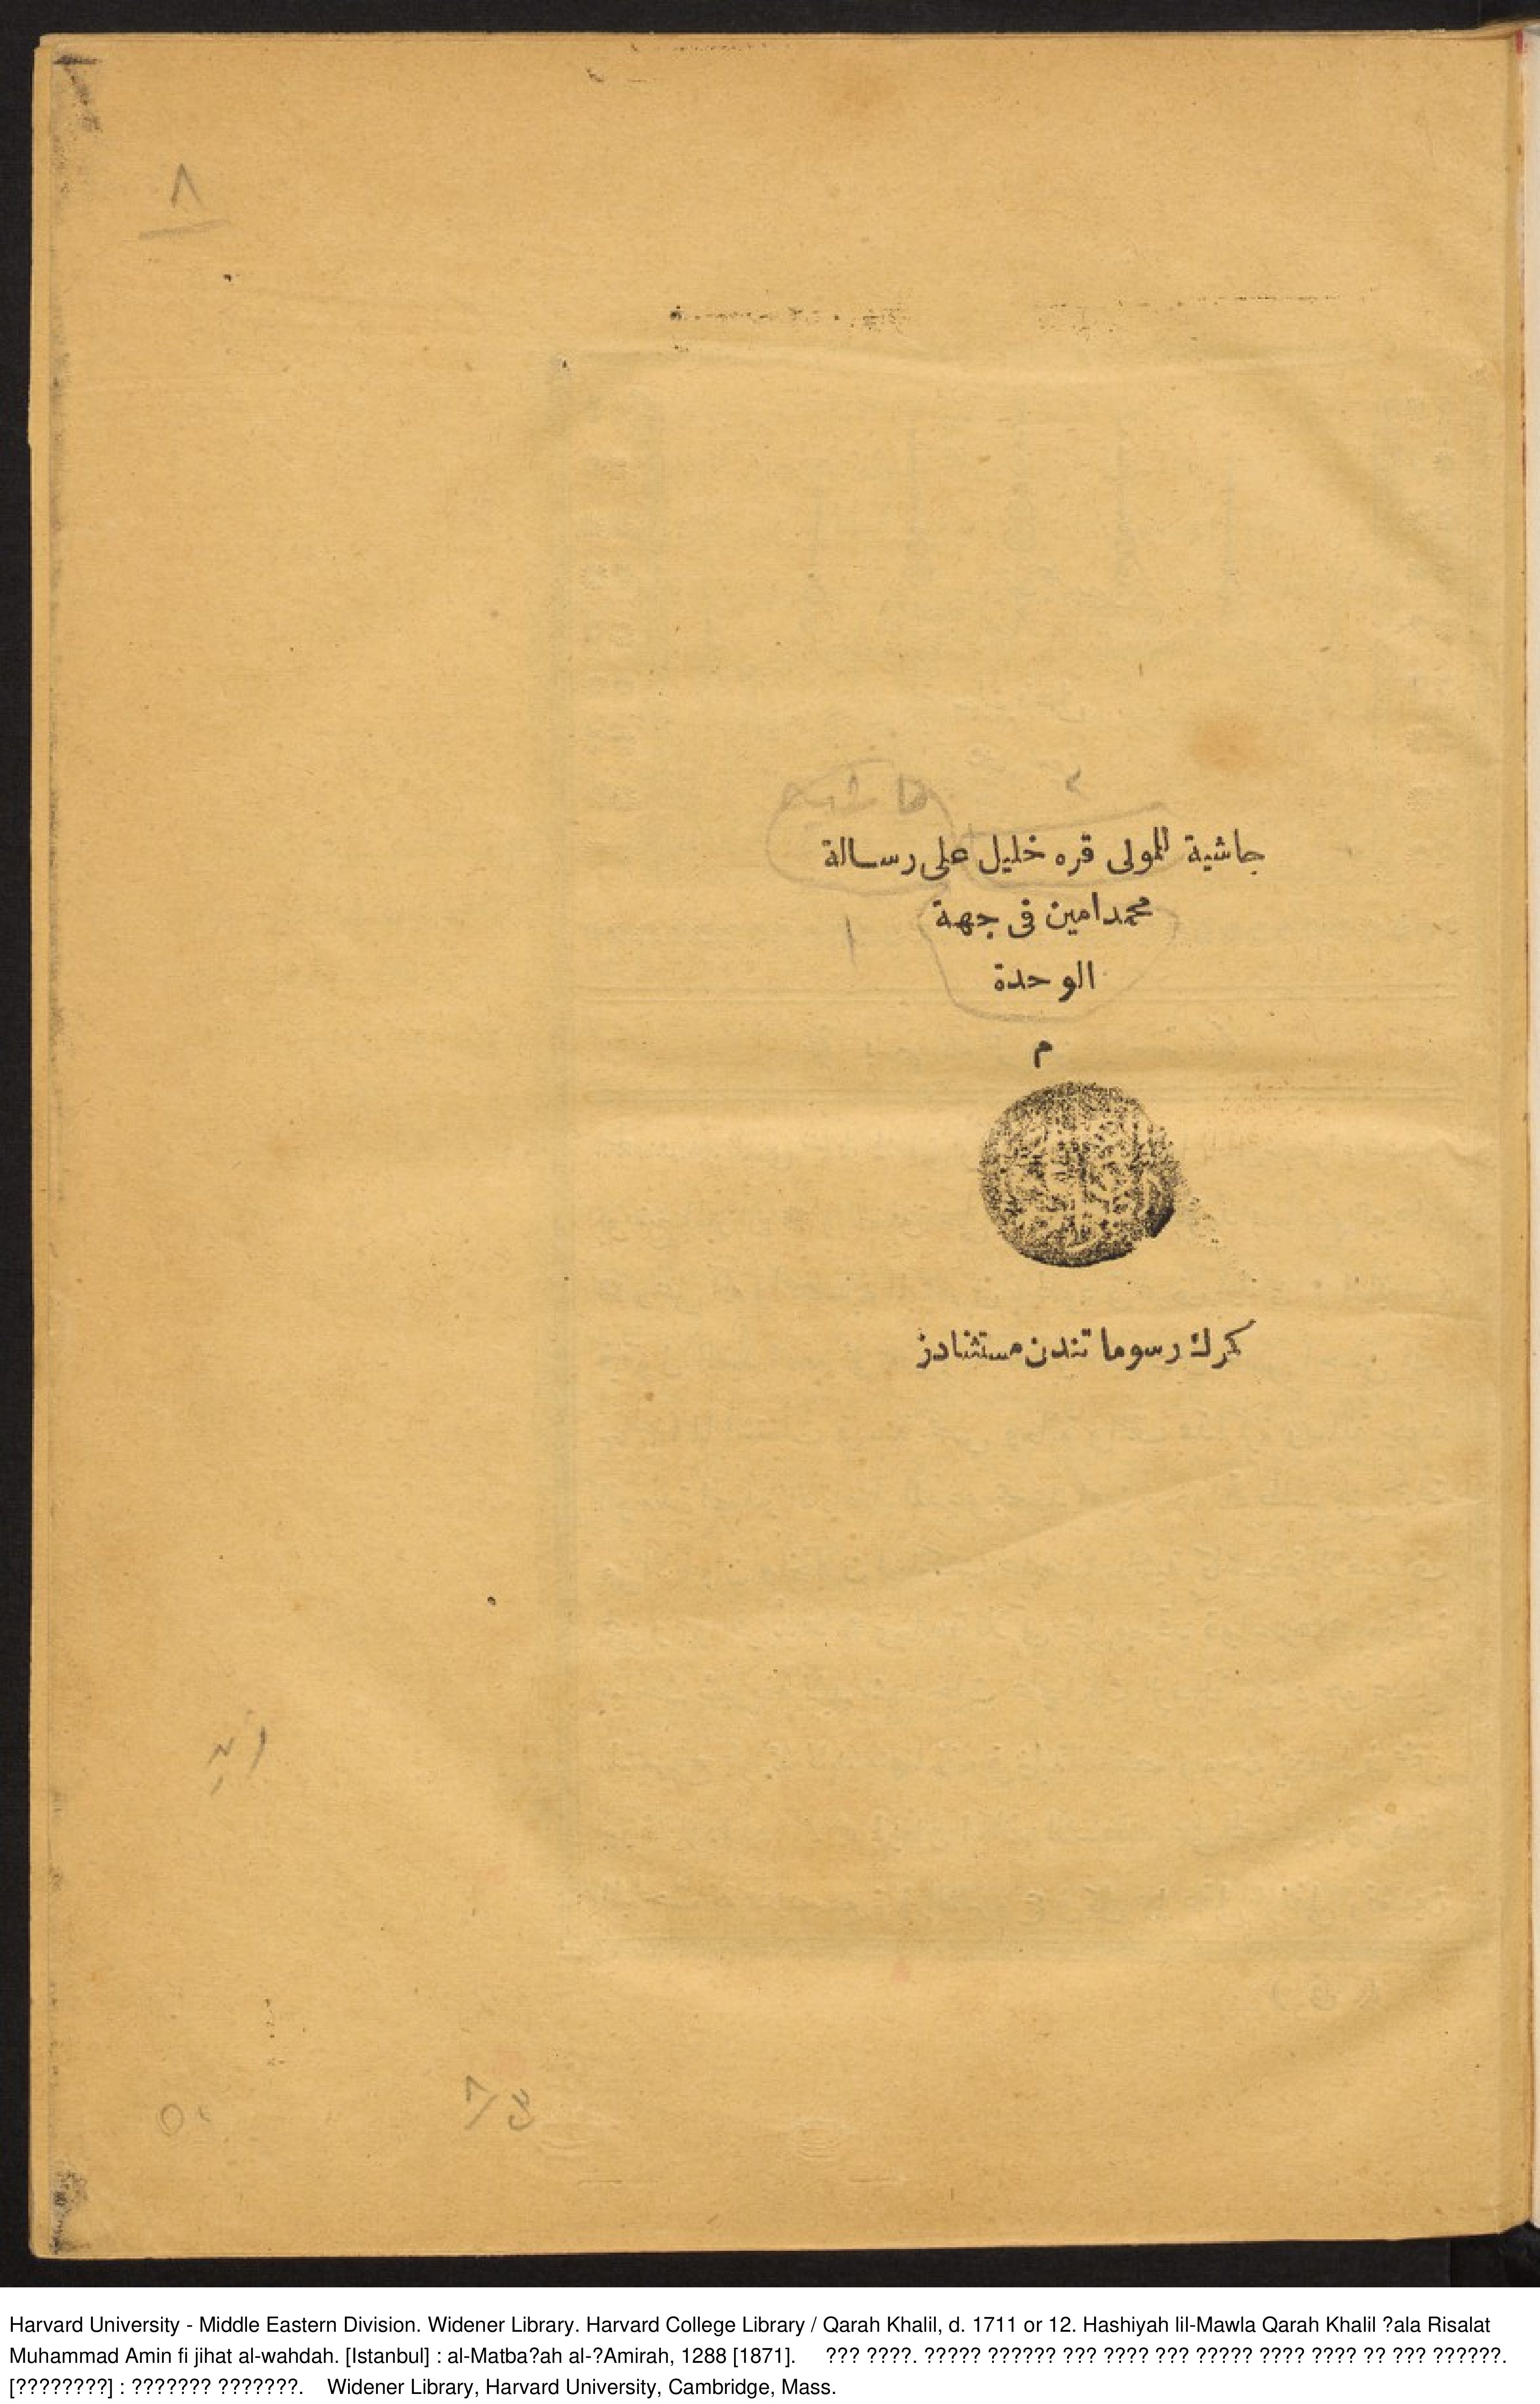 ٨
حاشيه
جاشية للمولى قره خليل على رسالة
محمد امين فى جهة
الوحدة
١
م
كمرك رسوماتندن مستثنادر
Harvard University - Middle Eastern Division. Widener Library. Harvard College Library / Qarah Khalil, d. 1711 or 12. Hashiyah lil-Mawla Qarah Khalil ?ala Risalat
Muhammad Amin fi jihat al-wahdah. [Istanbul] : al-Matba?ah al-?Amirah, 1288 [1871]. ??? ????. ????? ?????? ??? ???? ??? ????? ???? ???? ?? ??? ??????.
[????????] : ??????? ???????. Widener Library, Harvard University, Cambridge, Mass.